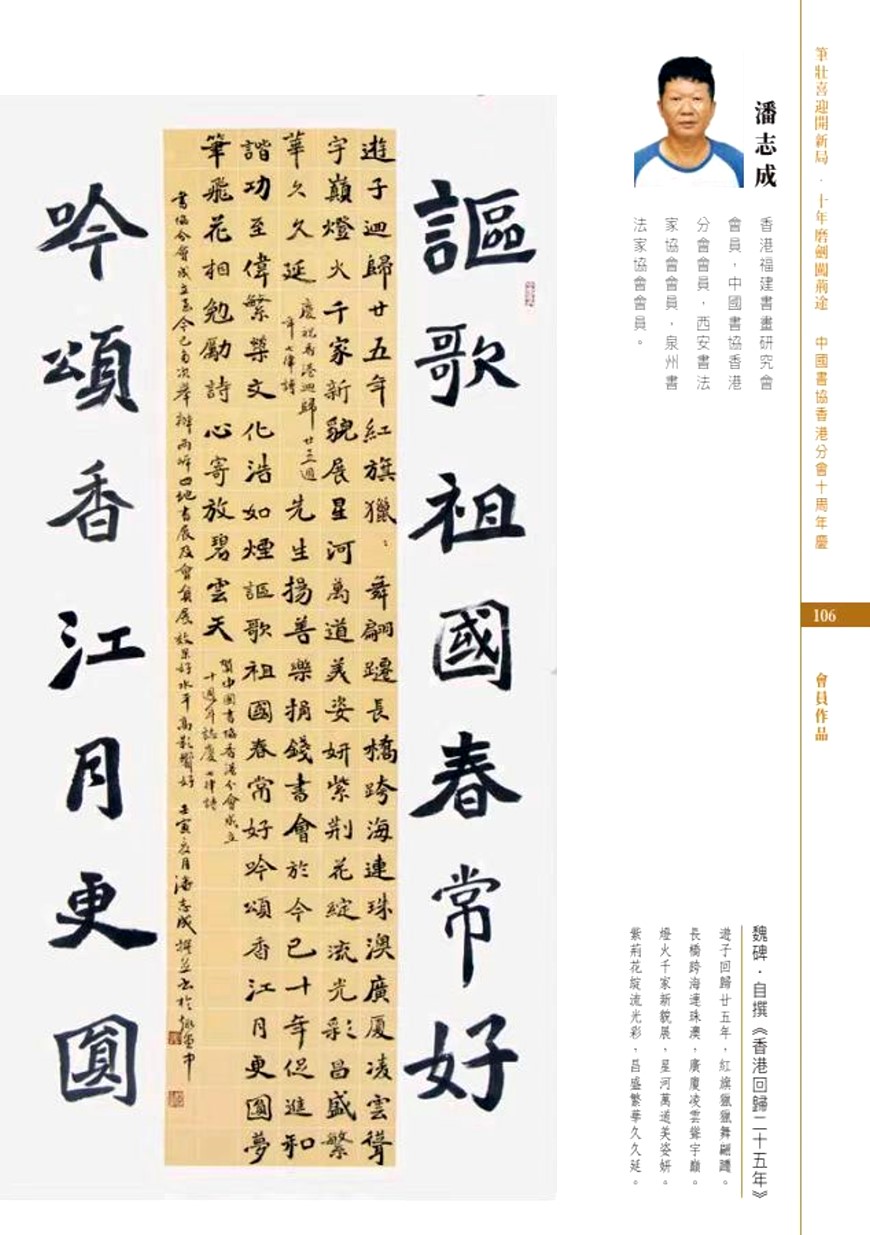 筆壯喜迎開新局．十年磨劍闖荊途
中國書協香港分會十周年慶
106
會員作品
潘志成
香港福建書畫研究會
會員，中國書協香港
分會會員，西安書法
家協會會員，泉州書
法家協會會員。
魏碑．自撰《香港回歸二十五年》
遊子回歸廿五年，紅旗獵獵舞翩躚。
長橋跨海連珠澳，廣廈凌雲聳宇巔。
燈火千家新貌展，星河萬道美姿妍。
紫荊花綻流光彩，昌盛繁華久久延。
謳歌祖國春常好
遊子迴歸廿五年紅旗獵：舞翩躚長橋跨海連珠澳廣厦凌雲聳
宇巔燈火千家新貌展星河萬道美姿妍紫荆花綻流光彩昌盛繁
華久久延
慶祝香港迴歸廿五週
年七律詩
先生揚善樂捐錢書會於今已十年促進和
諧功至偉繁榮文化浩如煙謳歌祖國春常好吟頌香江月更圓夢
筆飛花相勉勵詩心寄放碧雲天
賀中國書協香港分會成立
十週年誌慶七律詩
書協分會成立至今已多次舉辦兩岸四地書展及會員展效果好水平高影響好
壬寅夏月潘志成撰並書於
吟頌香江月更圓